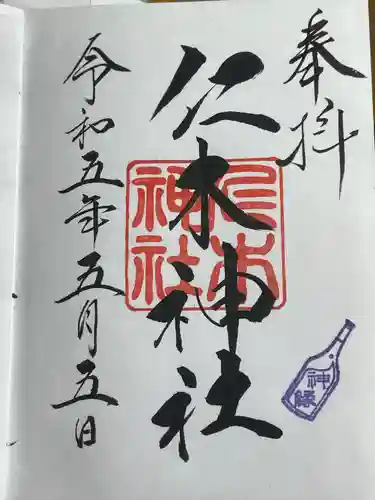 奉拝
仁木神社
仁木神社
令和五年五月五日
神縁